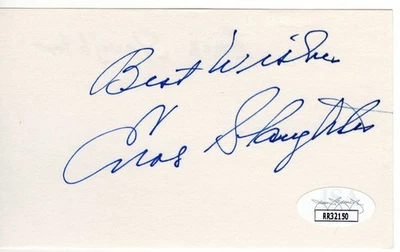 Best Wishes
Enos Slaughter
RR32150